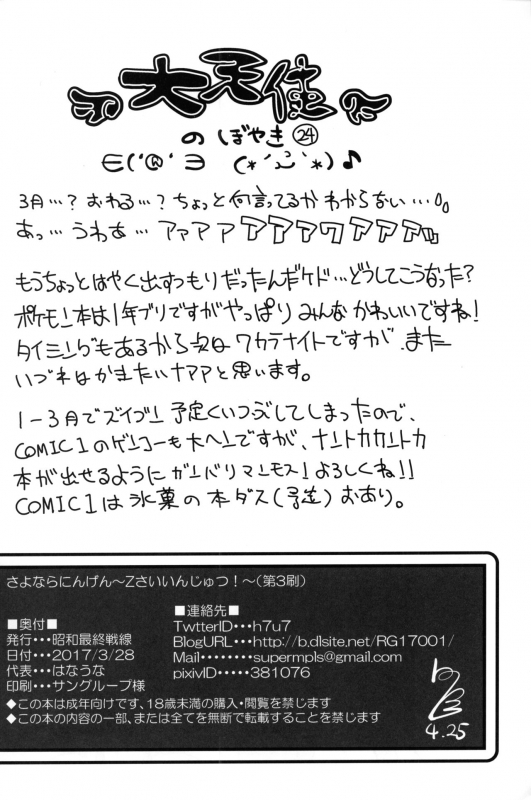 大天使
の ぼやき ㉔
∈(・@・∋ (*´ω`*)♪
3月…？おわる…？ちょっと何言ってるかわからない…
あっ… うわぁ… アァァァアアァァワアアァ
もうちょっとはやく出すつもりだったんだケド…どうしてこうなった？
ポケモン本は1年ブリですがやっぱりみんなかわいいですね！
タイミングもあるから次はワカラナイトですが、また
いづれはかきたいナァァと思います。
1-3月でズイブン予定くいつぶしてしまったので、
COMIC1のゲンコーも大ヘンですが、ナントカカントカ
本が出せるようにガンバリマンモス！よろしくね！！
COMIC1は氷菓の本ダス(予定)おあり。
さよならにんげん～Zさいいんじゅつ！～(第3刷)
■奥付■
発行・・・昭和最終戦線
日付・・・2017/3/28
代表・・・はなうな
印刷・・・サングループ様
■連絡先■
TwtterID・・・h7u7
BlogURL・・・http://b.dlsite.net/RG17001/
Mail・・・・・・・・supermpls@gmail.com
pixivID・・・・・381076
◆この本は成年向けです、18歳未満の購入・閲覧を禁じます
◆この本の内容の一部、または全てを無断で転載することを禁じます
4.25